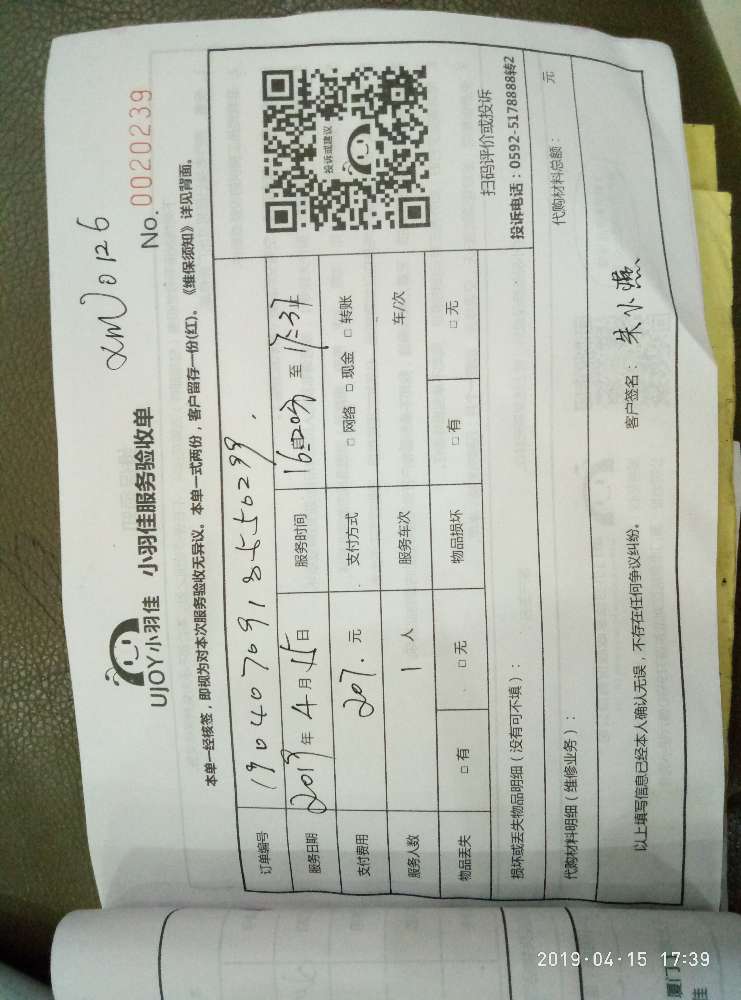 XMN0126
UJOY小羽佳 小羽佳服务验收单
No. 0020239
本单一经核签，即视为对本次服务验收无异议。本单一式两份，客户留存一份(红)。《维保须知》详见背面。
订单编号 19040709185550299
服务日期 2019年4月15日 服务时间 至17:37
支付费用 207.元 支付方式 □网络 □现金 □转账
服务人数 1人 服务车次 车/次
物品丢失 □有 □无 物品损坏 □有 □无
投诉或建议
扫码评价或投诉
投诉电话：0592-5178888转2
损坏或丢失物品明细（没有可不填）：
代购材料明细（维修业务）： 代购材料总额： 元
以上填写信息已经本人确认无误，不存在任何争议纠纷。 客户签名：朱小燕
厦门
佳
2019-04-15 17:39